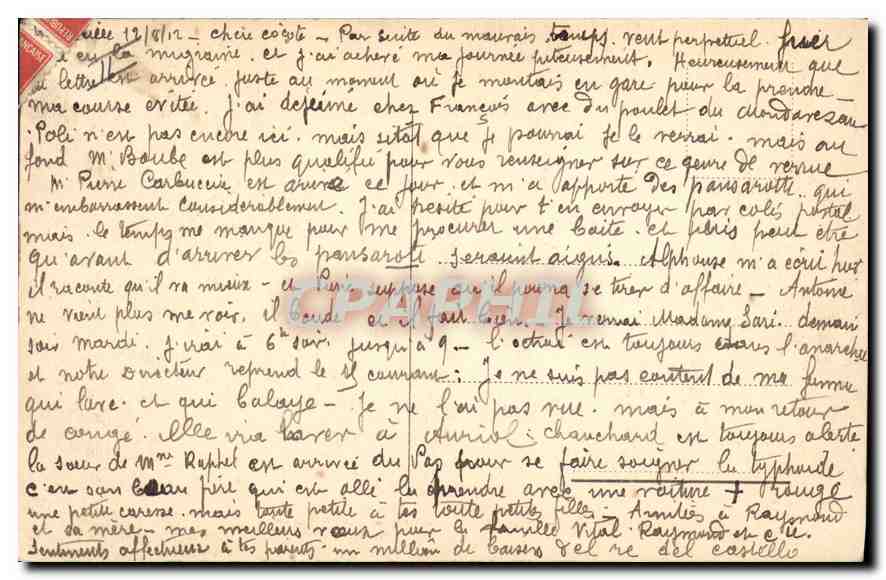 12/8/12 - chère cocote - Par suite du mauvais temps. vent perpetuel. hier
eu la migraine. et j'ai achevé ma journée piteusement. Heureusement que
ta lettre est arrivée juste au moment où je montais en gare pour la prendre -
ma course evitée. J'ai dejeuné chez François avec du poulet du
Poli n'est pas encore ici. mais sitôt que je pourrai je le verrai. mais au
fond Mr Boube est plus qualifié pour vous renseigner sur ce genre de verrue
Mr Pierre Carbuccia est arrivé ce jour. et m'a apporté des pansarotti. qui
m'embarrassent considerablement. J'ai hesité pour t'en envoyer par colis postal
mais le temps me manque pour me procurer une boite. et puis peut être
qu'avant d'arriver les pansarotti seraient aigris. Alphonse m'a écrit hier
il raconte qu'il va mieux - et Pierre suppose qu'il pourra se tirer d'affaire - Antoine
ne vient plus me voir. il boude et il fait bien. Je verrai Madame Sari demain
soir mardi. J'irai à 6h soir. jusqu'à 9 - l'octroi est toujours dans l'anarchie
et notre Directeur reprend le 15 courant. Je ne suis pas content de ma femme
qui lave. et qui balaye - Je ne l'ai pas vue. mais à mon retour
de congé. Elle ira laver à Auriol. chanchard est toujours alerte
la soeur de Mme Raphel est arrivée du Pas pour se faire soigner la typhoide
c'est son beau père qui est allé la prendre avec une voiture + rouge
une petite caresse. mais toute petite à tes toute petites filles - Amitiés à Raymond
et sa mère - mes meilleurs voeux pour la famille Vital. Raymond et Cie.
Sentiments affectueux à tes parents. un million de baisers del re del castello
CPARAMA
FRANÇAISE